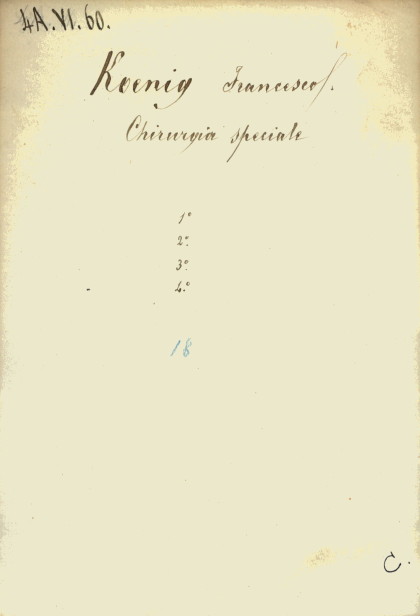 4A.VI.60.
Koenig Francesco
Chirurgia speciale
1º
2º
3º
4º
18
C.